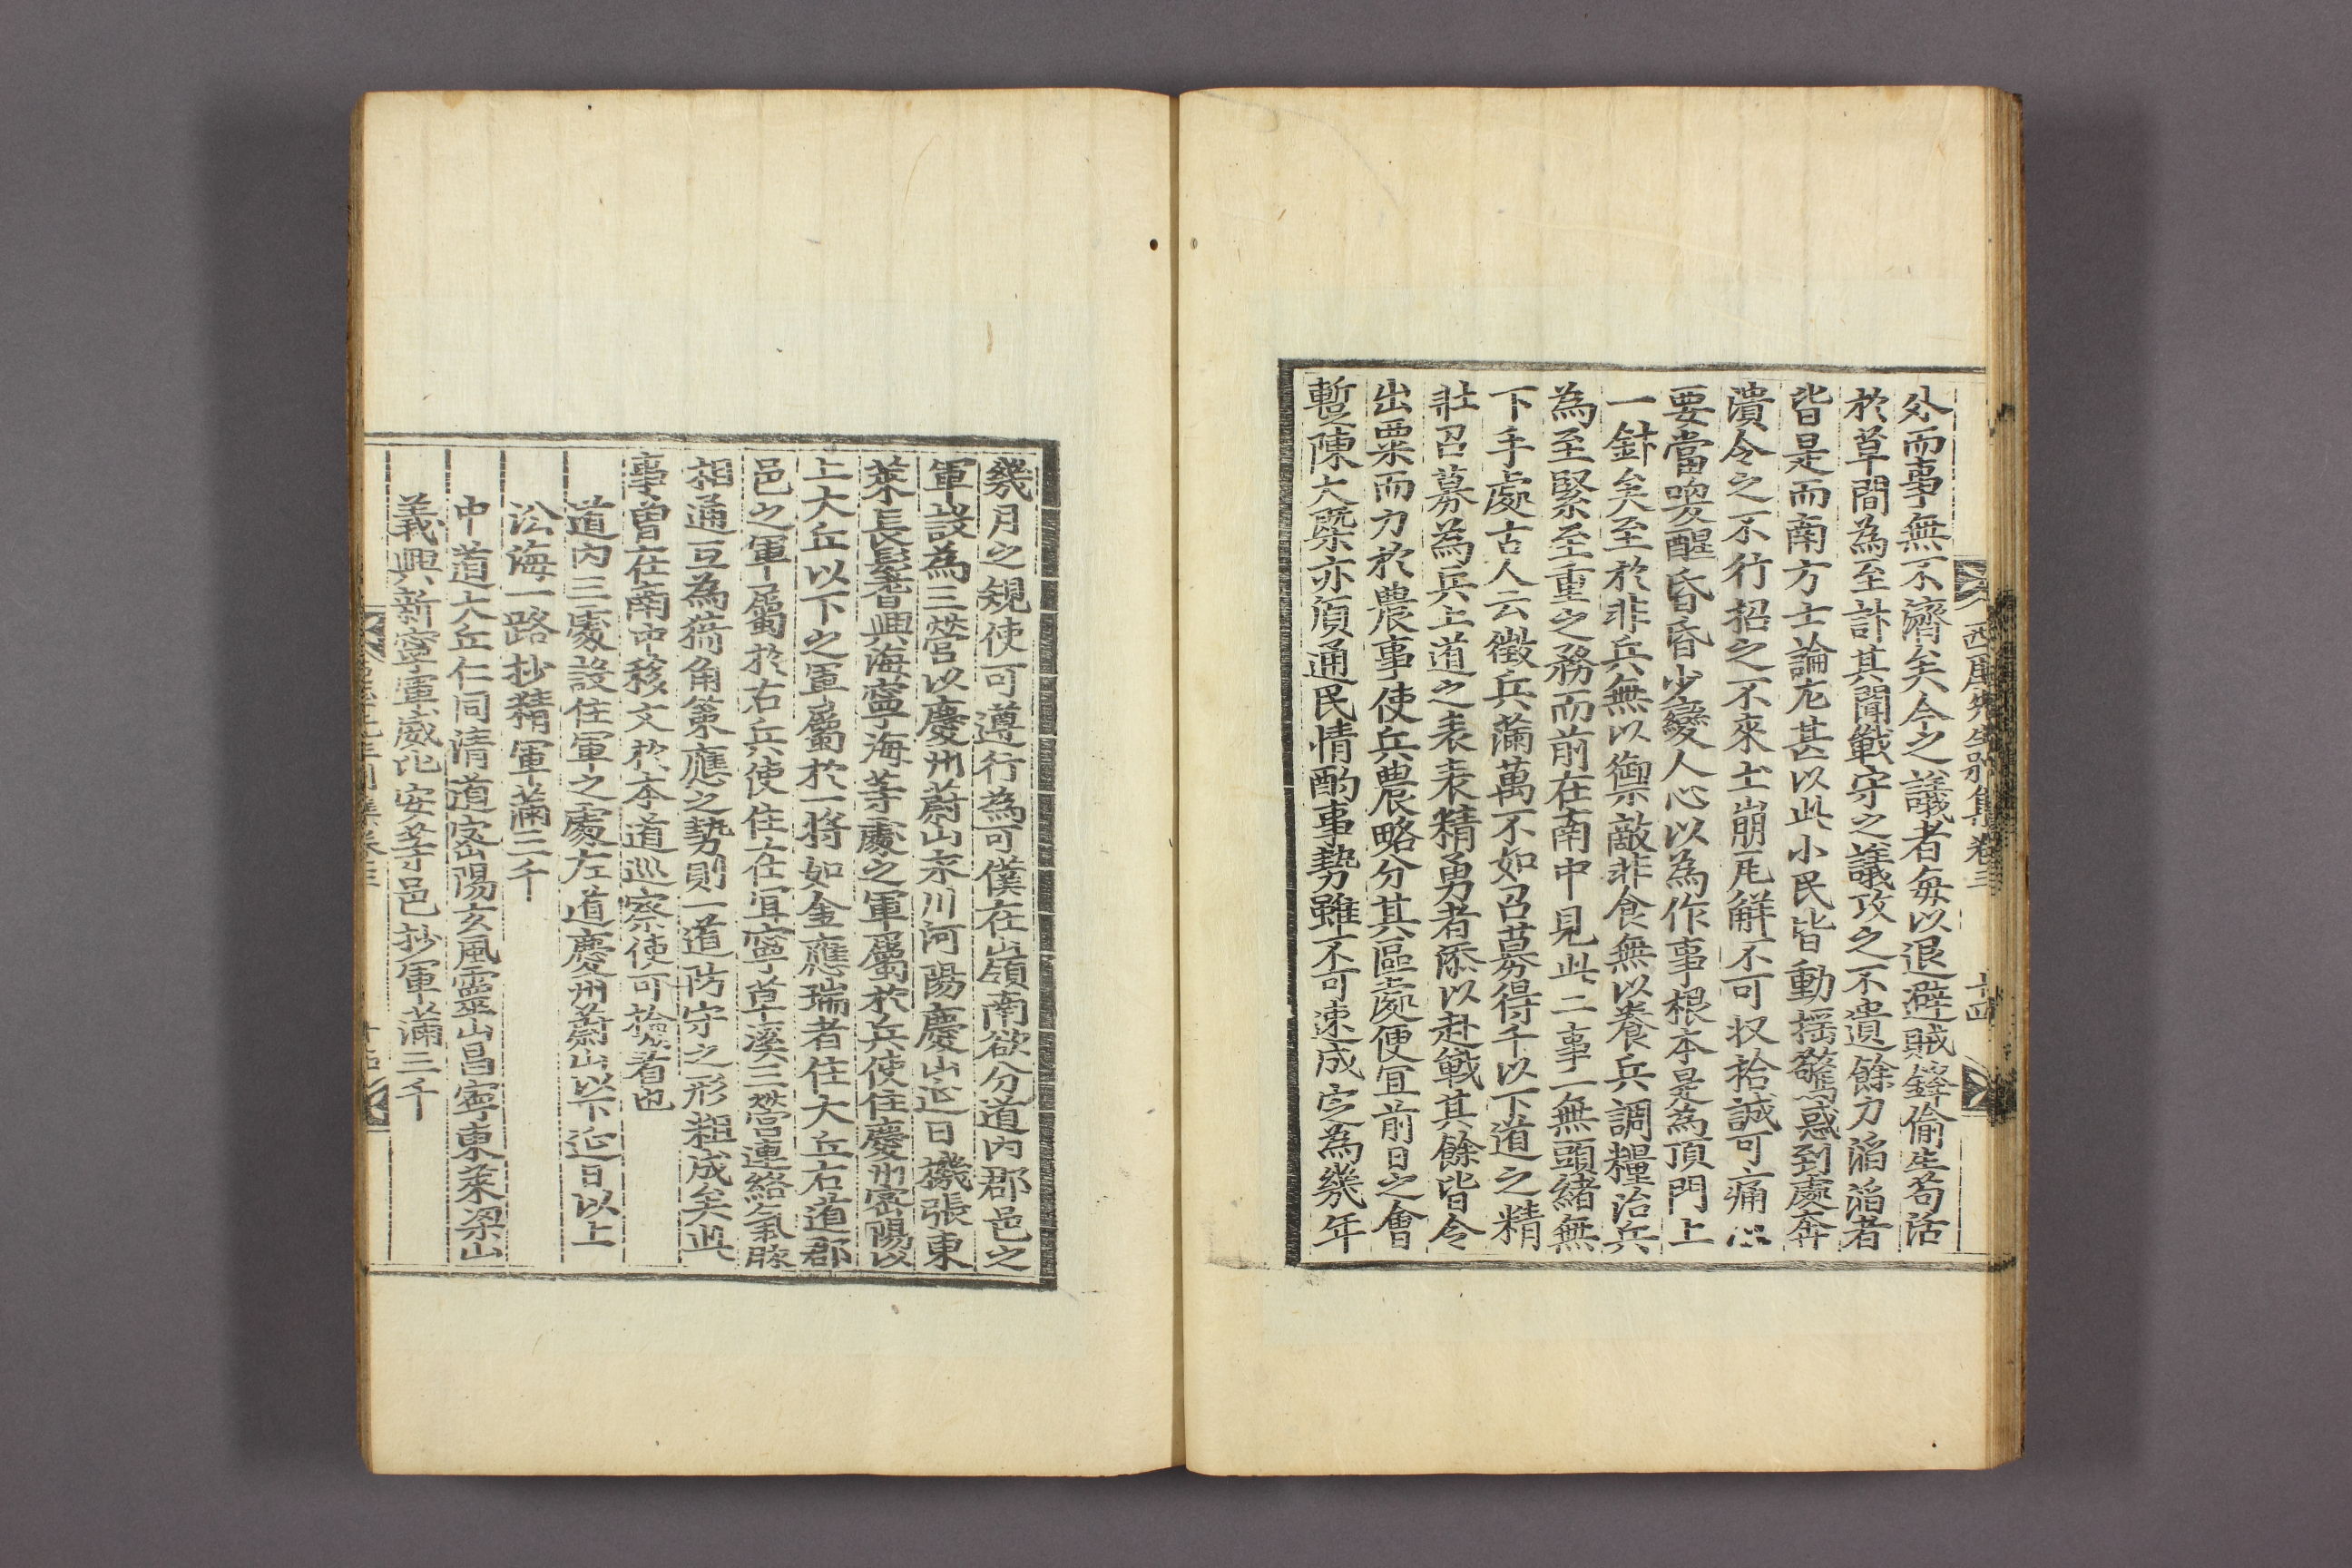 西厓先生別集卷三
十四
外而事無不濟矣今之議者每以退避賊鋒偷生苟活
於草間為至計其聞戰守之議攻之不遺餘力滔滔者
皆是而南方士論尤甚以此小民皆動搖驚惑到處奔
潰令之不行招之不來土崩瓦解不可收拾誠可痛心
要當喚醒昏昏少變人心以為作事根本是為頂門上
一針矣至於非兵無以禦敵非食無以養兵調糧治兵
為至緊至重之務而前在南中見此二事一無頭緒無
下手處古人云徵兵滿萬不如召募得千以下道之精
壯召募為兵上道之表表精勇者添以赴戰其餘皆令
出粟而力於農事使兵農略分其區處便宜前日之會
蹔陳大槩亦須通民情酌事勢雖不可速成定為幾年
幾月之規使可遵行為可僕在嶺南欲分道內郡邑之
軍設為三營以慶州蔚山永川河陽慶山迎日機張東
萊長鬐興海寧海等處之軍屬於兵使住慶州密陽以
上大丘以下之軍屬於一將如金應瑞者住大丘右道郡
邑之軍屬於右兵使住在宜寧草溪三營連絡氣脉
相通互為犄角策應之勢則一道防守之形粗成矣此
事曾在南中移文於本道巡察使可撿看也
道內三處設住軍之處左道慶州蔚山以下迎日以上
沿海一路抄精軍滿三千
中道大丘仁同清道密陽玄風靈山昌寧東萊梁山
義興新寧軍威比安等邑抄軍滿三千